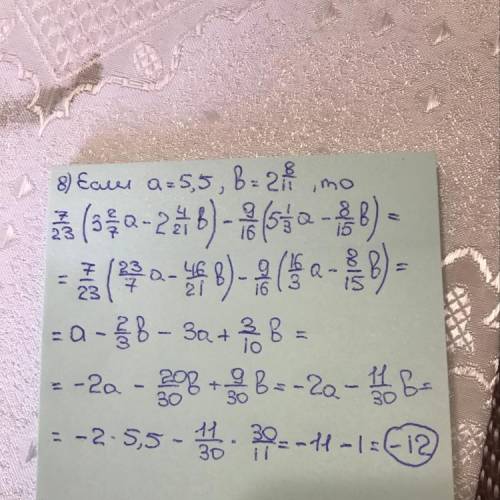 8) Если a=5,5, b=2 8/11, то
7/23 (3 2/7 a - 2 4/21 b) - 9/16 (5 1/3 a - 8/15 b) =
= 7/23 (23/7 a - 46/21 b) - 9/16 (16/3 a - 8/15 b) =
= a - 2/3 b - 3a + 3/10 b =
= -2a - 20/30 b + 9/30 b = -2a - 11/30 b =
= -2 · 5,5 - 11/30 · 30/11 = -11 - 1 = -12